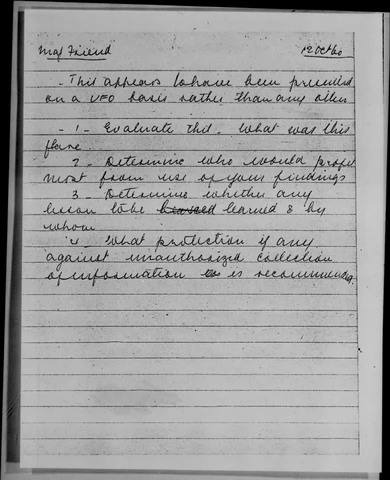 Maj Friend 12 Oct 60
- This appears to have been presented
on a UFO basis rather than any other
- 1 - Evaluate this. What was this
flare.
2 - Determine who would profit
most from use of your findings
3 - Determine whether any
lesson to be learned & by
whom
4 - What protection if any
against unauthorized collection
of information is recommended.